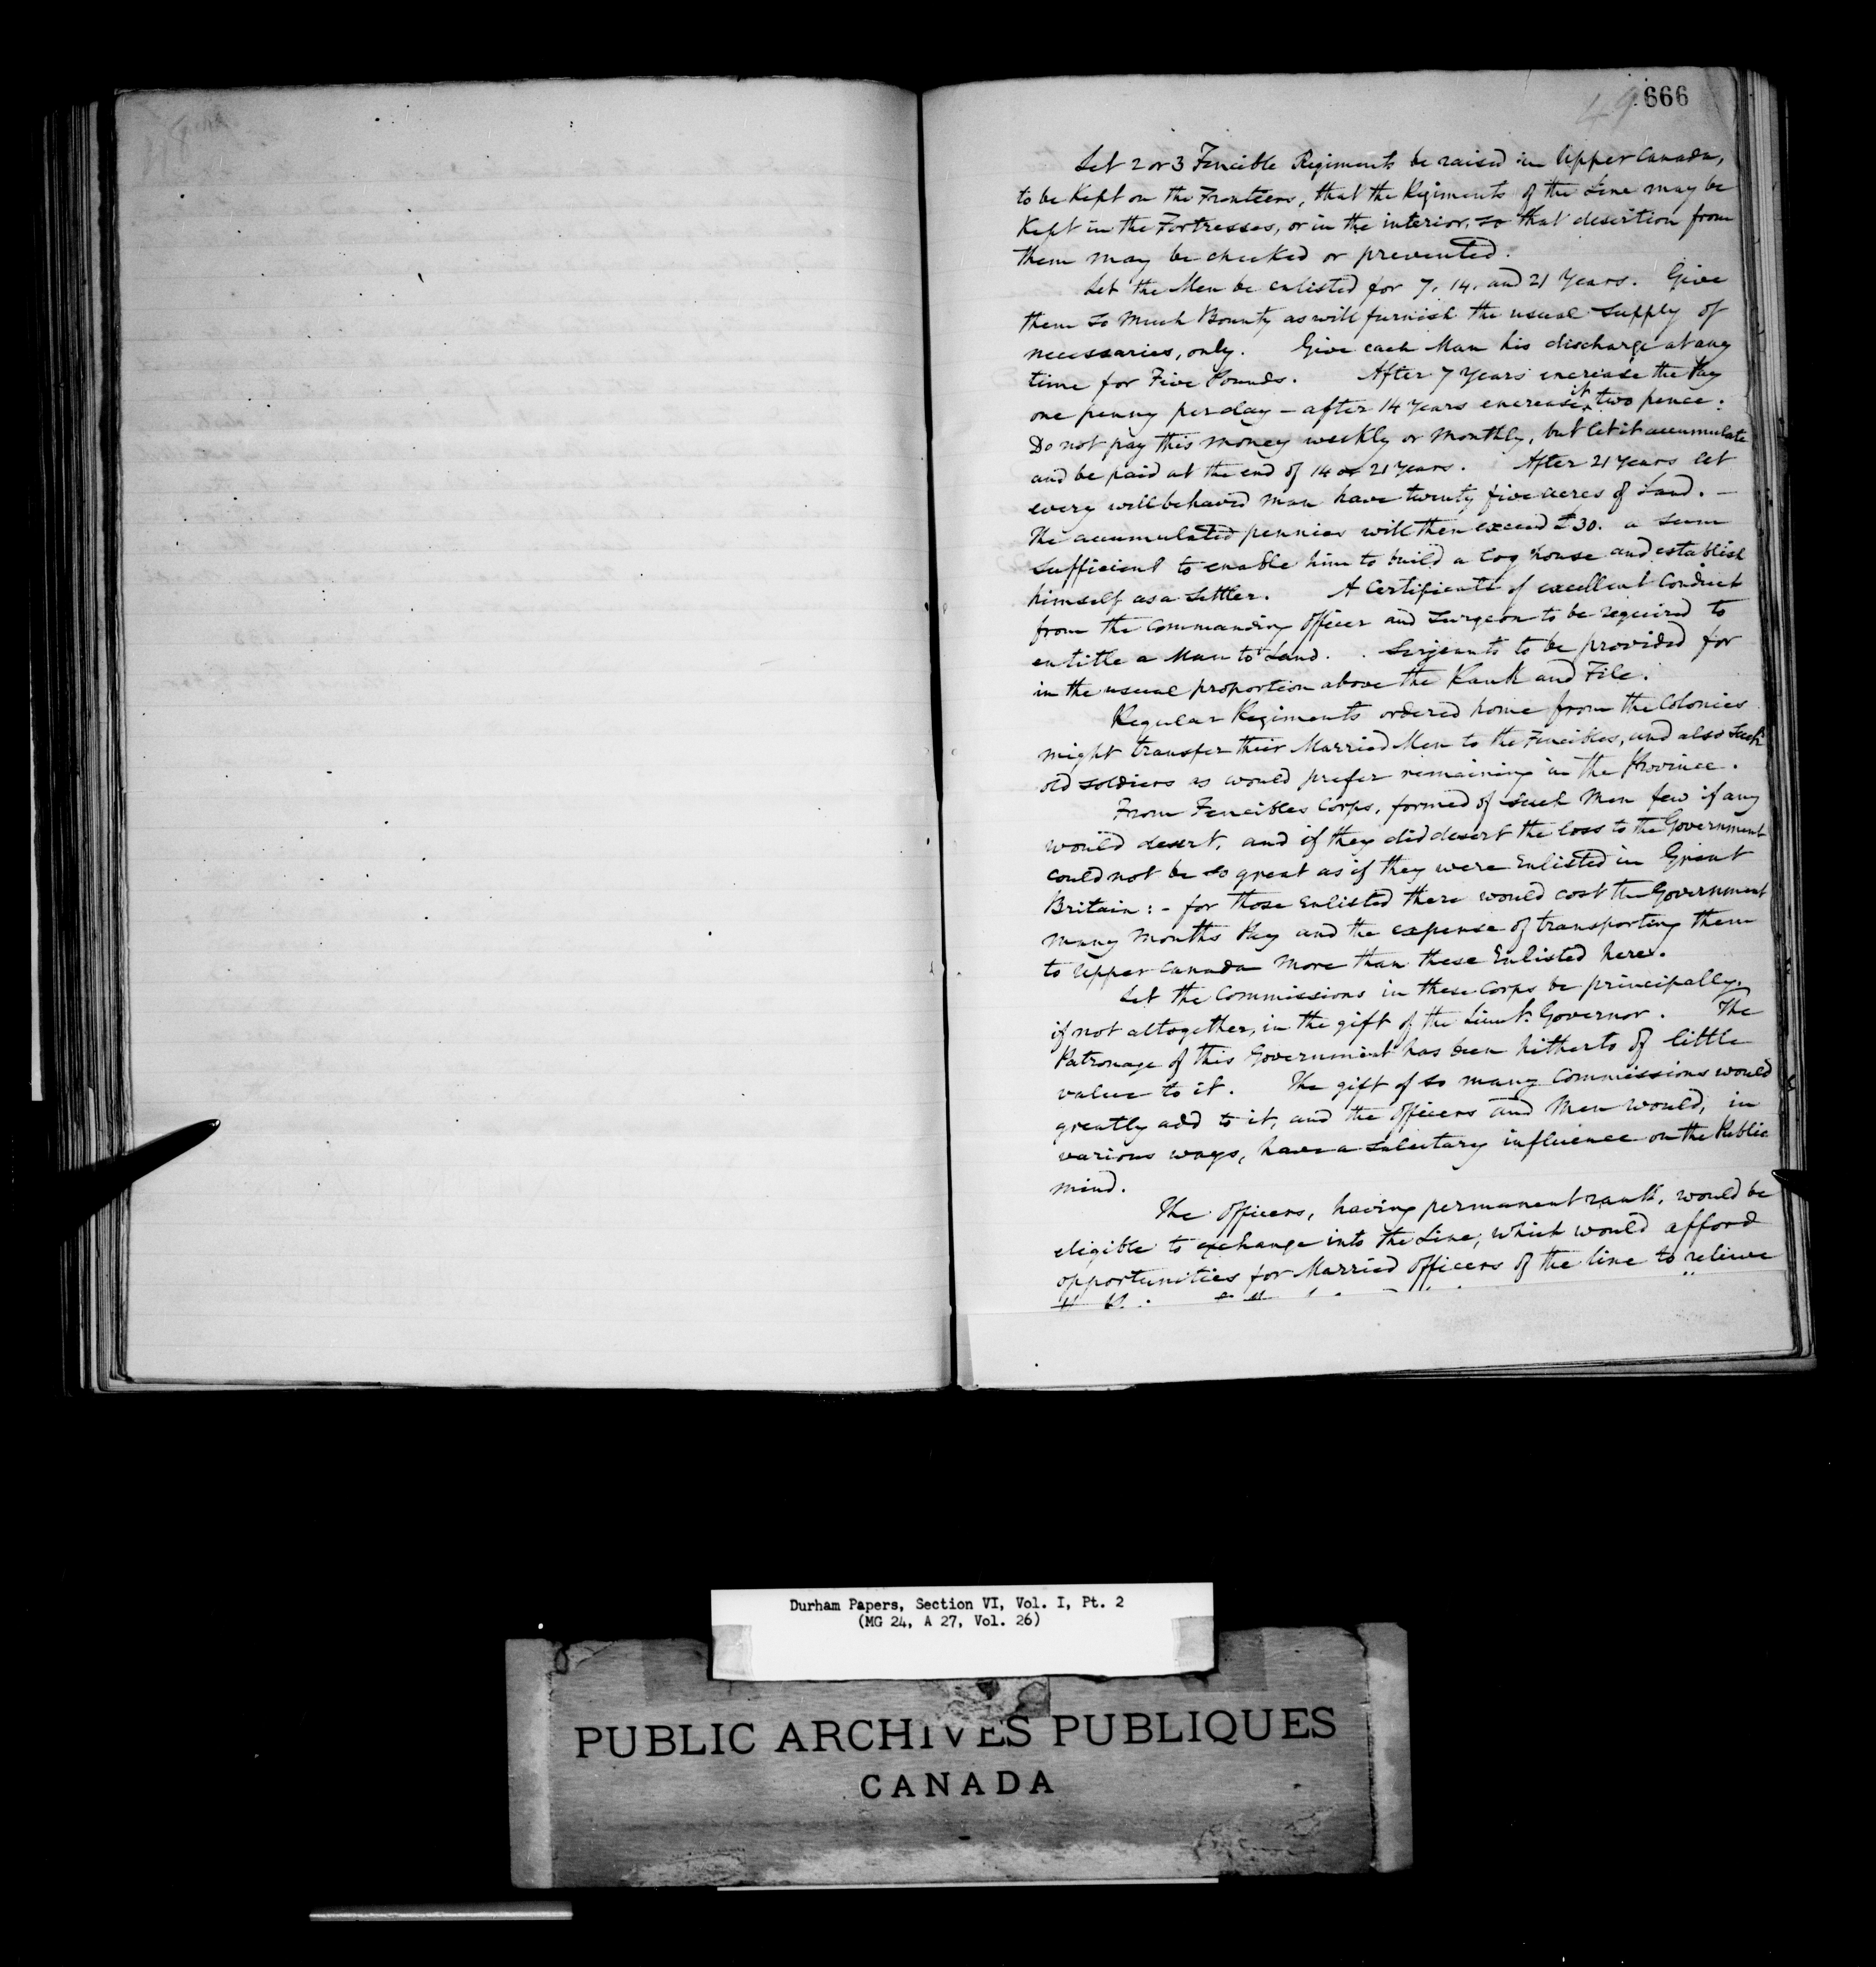 666
49
Let 2 or 3 Fencible Regiments be raised in Upper Canada,
to be Kept on the Frontiers, that the Regiments of the Line may be
Kept in the Fortresses, or in the interior, so that desertion from
them may be checked or prevented.
Let the Men be enlisted for 7, 14, and 21 Years. Give
them so much Bounty as will furnish the usual supply of
necessaries, only. Give each Man his discharge at any
time for Five Pounds. After 7 Years increase the Pay
one penny per day - after 14 Years encrease it two pence:
Do not pay this money weekly or Monthly, but let it accumulate
and be paid at the end of 14 or 21 Years. After 21 Years let
every well behaved man have twenty five acres of Land. -
The accumulated pennies will then exceed £30. a Sum
sufficient to enable him to build a log house and establish
himself as a Settler. A Certificate of excellent Conduct
from the Commanding Officer and Surgeon to be required to
entitle a Man to Land. Serjeants to be provided for
in the usual proportion above the Rank and File.
Regular Regiments ordered home from the Colonies
might transfer their Married Men to the Fencibles, and also Such
old soldiers as would prefer remaining in the Province.
From Fencibles Corps, formed of such Men few if any
would desert, and if they did desert the loss to the Government
could not be so great as if they were Enlisted in Great
Britain: - for those Enlisted there would cost the Government
many months Pay and the expense of transporting them
to Upper Canada more than these Enlisted here.
Let the Commissions in these Corps be principally,
if not altogether, in the gift of the Lieut. Governor. The
Patronage of this Government has been hitherto of little
value to it. The gift of so many Commissions would
greatly add to it, and the Officers and Men would, in
various ways, have a salutary influence on the Public
mind.
The Officers, having permanent rank, would be
eligible to exchange into the Line, which would afford
opportunities for Married Officers of the line to relieve
Durham Papers, Section VI, Vol. I, Pt. 2
(MG 24, A 27, Vol. 26)
PUBLIC ARCHIVES PUBLIQUES
CANADA